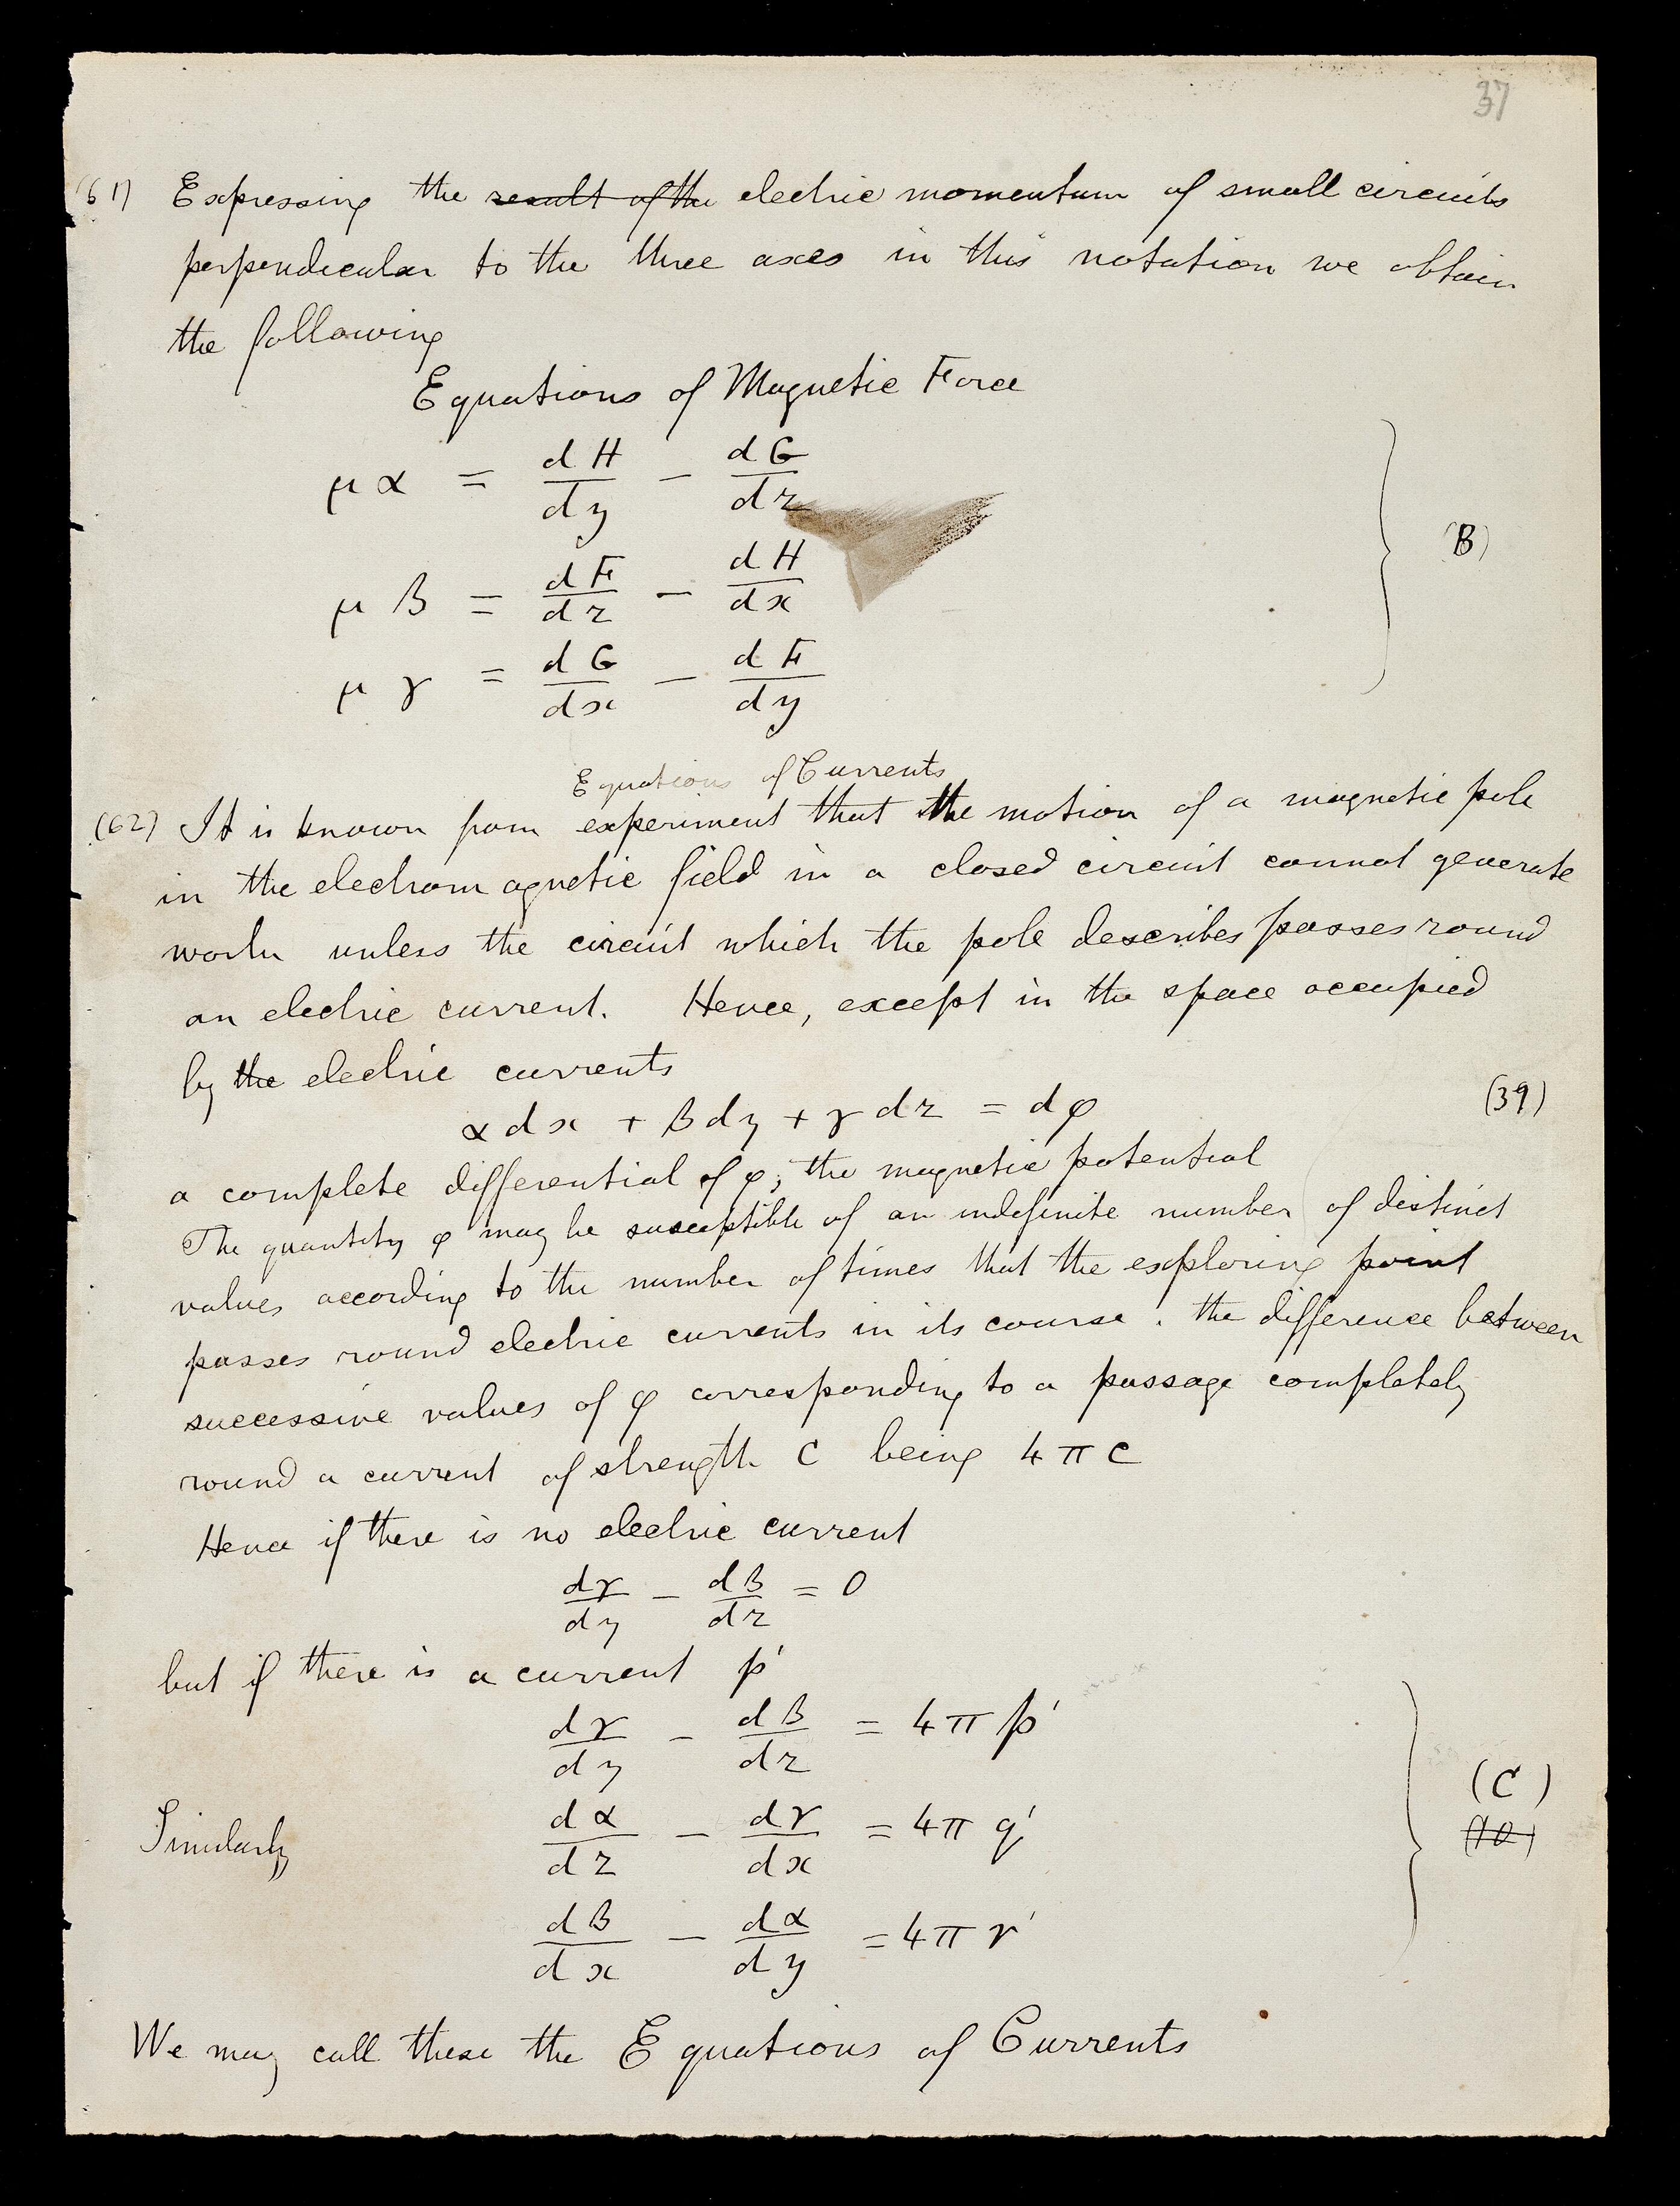 37
(61) Expressing the result of the electric momentum of small circuits
perpendicular to the three axes in this notation we obtain
the following
Equations of Magnetic Force
μα = dH/dy − dG/dz
μβ = dF/dz − dH/dx (B)
μγ = dG/dx − dF/dy
Equations of Currents
(62) It is known from experiment that the motion of a magnetic pole
in the electromagnetic field in a closed circuit cannot generate
work unless the circuit which the pole describes passes round
an electric current. Hence, except in the space occupied
by the electric currents
αdx + βdy + γdz = dφ (39)
a complete differential of φ, the magnetic potential
The quantity φ may be susceptible of an indefinite number of distinct
values according to the number of times that the exploring point
passes round electric currents in its course. the difference between
successive values of φ corresponding to a passage completely
round a current of strength C being 4πC
Hence if there is no electric current
dγ/dy − dβ/dz = 0
but if there is a current p'
dγ/dy − dβ/dz = 4πp'
Similarly dα/dz − dγ/dx = 4πq' (C) (40)
dβ/dx − dα/dy = 4πr'
We may call these the Equations of Currents